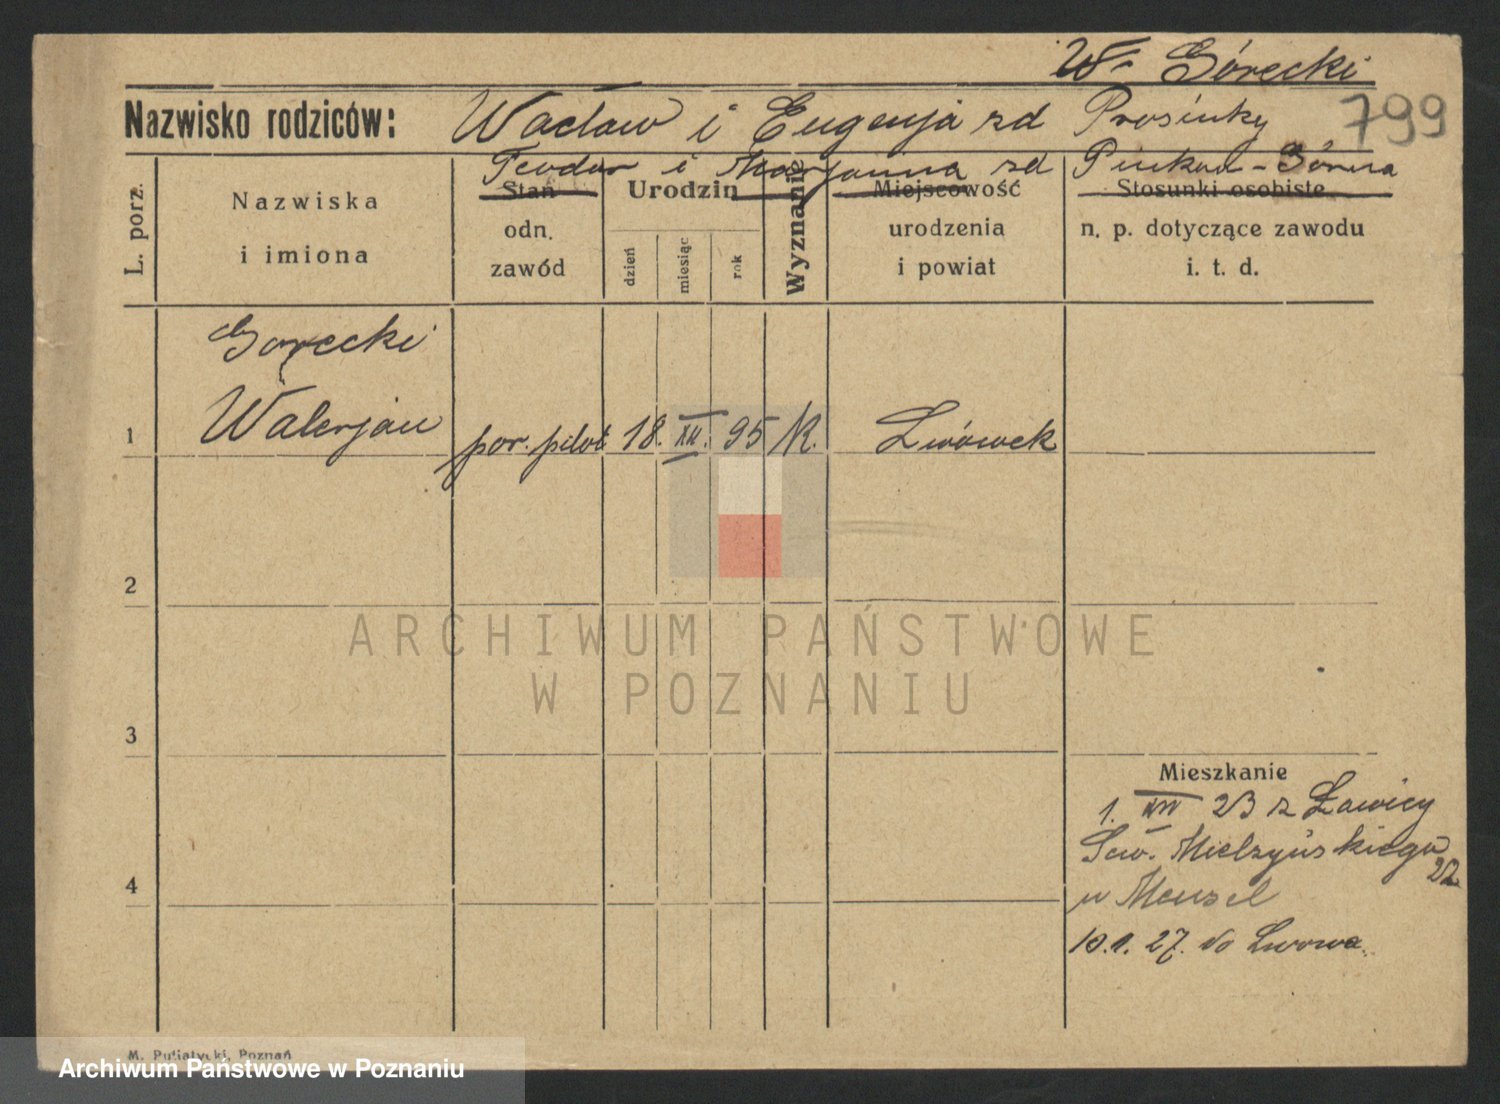 W. Górecki
Nazwisko rodziców: Wacław i Eugenja zd Prosinky
799
Teodor i Marjanna zd Górna
L. porz.
Nazwiska
i imiona
Stan
odn.
zawód
Urodzin
dzień
miesiąc
rok
Wyznanie
Miejscowość
urodzenia
i powiat
Stosunki osobiste
n. p. dotyczące zawodu
i. t. d.
Gorecki
1 Walerjan por. pilot 18. XII. 95 K. Lwówek
2
ARCHIWUM PAŃSTWOWE
W POZNANIU
3
Mieszkanie
1. 23 z Ławicy
Sew. Mielżyńskiego
22
u Mensel
4
10.1.27. do Lwowa.
M. Putiatycki, Poznań
Archiwum Państwowe w Poznaniu